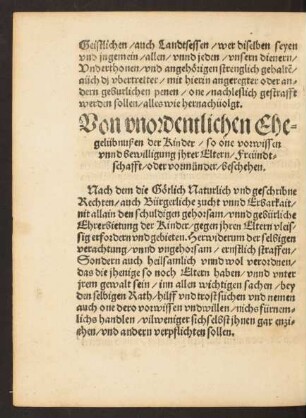 Geistlichen / auch Landtsessen / wer diselben seyen
vnd jngemein / allen / vnnd jeden / vnsern dienern /
Vnderthonen / vnd angehörigen strenglich gebaltē /
auch dj vbertretter / mit hierjn angeregter oder an-
dern gebürlichen penen / one / nachleßlich gestrafft
werden sollen / alles wie hernachuolgt.
Von vnordentlichen Ehe-
gelübnußen der Kinder / so one vorwissen
vnnd bewilligung jhrer Eltern / Freündt-
schafft / oder vormünder / geschehen.
Nach dem die Götlich Naturlich vnd geschribne
Rechten / auch Bürgerliche zucht vnnd Erbarkait /
nit allain den schuldigen gehorsam / vnnd gebürliche
Ehrerbietung der Kinder / gegen jhren Eltern vleis-
sig erfordern vnd gebieten. Herwiderum̄ der selbigen
verachtung / vnnd vngehorsam / ernstlich straffen /
Sondern auch heilsamlich vnnd wol verordnen /
das die jhenige so noch Eltern haben / vnnd vnter
jrem gewalt sein / inn allen wichtigen sachen / bey
den selbigen Rath / hilff vnd trost suchen vnd nemen
auch one dero vorwissen vnd willen / nichs fürnem-
lichs handlen / vil weniger sich selbst jhnen gar enzi-
ehen / vnd andern verpflichten sollen.